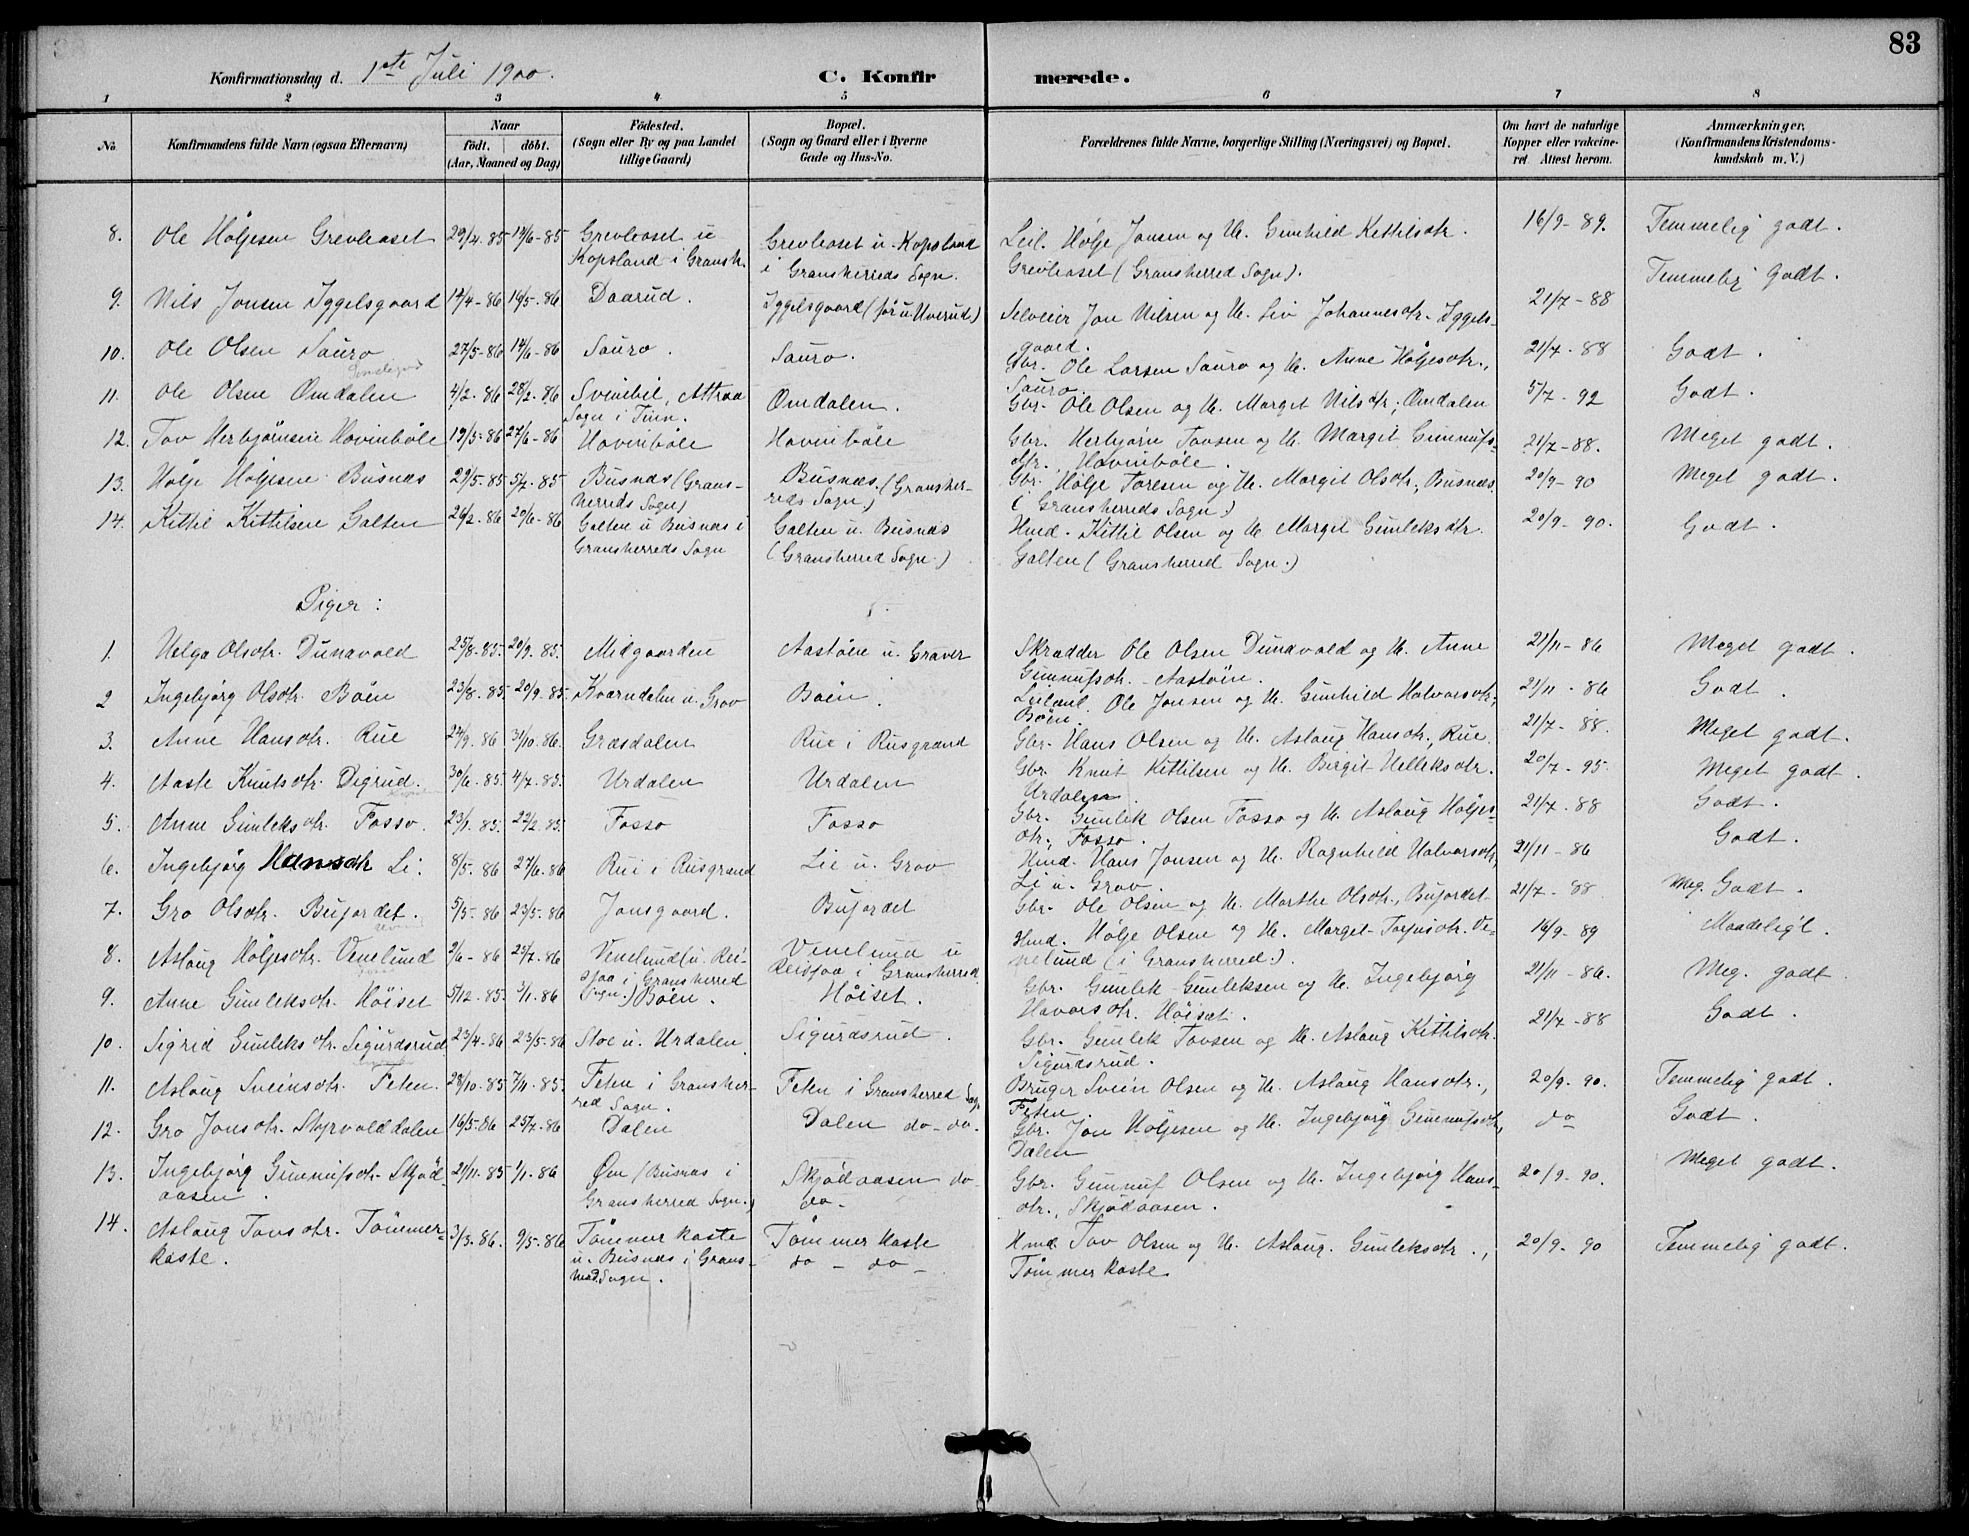 83
Konfirmationsdag d. 1ste Juli 1900. C. Konfirmerede.
1 2 3 4 5 6 7 8
No. Konfirmandens fulde Navn (ogsaa Efternavn) Naar født. døbt. (Aar, Maaned og Dag) Fødested. (Sogn eller By og paa Landet tillige Gaard) Bopæl. (Sogn og Gaard eller i Byerne Gade og Hus-No. Forældrenes fulde Navne, borgerlige Stilling (Næringsvei) og Bopæl. Om havt de naturlige Kopper eller vakcineret Attest herom. Anmærkninger, (Konfirmandens Kristendomskundskab m. V.)
8. Ole Høljesen Grevleaset 29/4-85 14/6-85 Grevleaset u Grevleaset u. Kopsland Leil. Hølje Jonsen og H. Gunhild Kittilsdtr. 16/9-89. Temmelig godt.
Kopsland i Gransh. i Gransherreds Sogn. Grevleaset (Gransherred Sogn).
9. Nils Jonsen Iggelsgaard 14/4-86 16/5-86 Daarud. Iggelsgaard (før u. Uverud) Selveier Jon Nilsen og H. Liv Johannesdtr. Iggels- 21/7-88 Temmelig godt.
gaard.
10. Ole Olsen Sauro 27/5-86 14/6-86 Sauro. Sauro. Gbr. Ole Larsen Sauro og H. Anne Høljesdtr., 21/7-88 Godt.
Sauro.
11. Ole Olsen Ømdalen 4/2-86 28/2-86 Svinebil, Attraa Ømdalen. Gbr. Ole Olsen og H. Margit Nilsdtr, Ømdalen 5/7-92 Godt.
Sogn i Tinn.
12. Tov Herbjørnsen Hovinbøle 19/5-86 27/6-86 Hovinbøle Hovinbøle Gbr. Herbjørn Tovsen og H. Margit Gunnufs- 21/7-88. Meget godt.
dtr. Hovinbøle.
13. Hølje Høljesen Busnæs 29/5-85 5/7-85 Busnæs (Grans- Busnæs (Gransher- Gbr. Hølje Toresen og H. Margit Olsdtr, Busnæs 20/9-90 Meget godt.
herreds Sogn) reds Sogn.) (i Gransherreds Sogn.)
14. Kittil Kittilsen Galten 26/2-86 20/6-86 Galten u Busnæs i Galten u. Busnæs Hmd. Kittil Olsen og H. Margit Gunleksdtr. 20/9-90. Godt.
Gransherreds Sogn (Gransherred Sogn.) Galten (Gransherred Sogn.)
Piger:
1. Helga Olsdtr. Dunavold 25/8-85. 20/9-85. Midgaarden Aastøin u. Graver Skrædder Ole Olsen Dunavold og H. Anne 21/11-86 Meget godt.
Gunnufsdtr. Aastøin.
2 Ingebjørg Olsdtr. Bøen 23/8-85 20/9-85. Kvarndalen u. Grov Bøen Leilænd. Ole Jonsen og H. Gunhild Halvorsdtr. 21/11-86 Godt.
Bøen.
3. Anne Hansdtr. Rue 24/9-86 31/10-86. Græsdalen Rue i Rusgrænd Gbr. Hans Olsen og H. Aslaug Hansdtr., Rue. 21/7-88. Meget godt.
4. Aaste Knutsdtr. Digrud. 30/6-85. 4/7-85. Urdalen Urdalen Gbr. Knut Kittilsen og H. Birgit Helleksdtr. 20/7-95. Meget godt.
Urdalen.
5. Anne Gunleksdtr. Fosso. 23/1-85. 22/2-85. Fosso Fosso Gbr. Gunlek Olsen Fosso og H. Aslaug Høljes- 21/7-88 Godt.
dtr., Fosso.
6. Ingebjørg Hansdtr Li. 8/5-86 27/6-86 Rui i Rusgrænd Lie u. Grov Hmd. Hans Jonsen og H. Ragnhild Halvorsdtr, 21/11-86 Godt.
Li u. Grov.
7. Gro Olsdtr. Bufordet. 5/5-86 23/5-86 Jonsgaard. Bufordet Gbr. Ole Olsen og H. Marthe Olsdtr., Bufordet 21/7-88 Meg. Godt.
8. Aslaug Høljesdtr. Venelund 2/6-86 25/7-86 Venelund (u. Rei- Venelund u Hmd. Hølje Olsen og H. Margit Torjusdtr. Ve- 16/9-89 Maadeligt.
sjaa i Gransherred Sogn.) Reisjaa i Gransherred nelund (i Gransherred.)
9. Anne Gunleksdtr. Høiset 5/12-85. 3/1-86 Bøen. Høiset. Gbr. Gunlek Gunleksen og H. Ingebjørg 21/11-86. Meg. godt.
Havorsdtr. Høiset.
10. Sigrid Gunleksdtr. Sigurdsrud 23/4-86 23/5-86 Stoe u. Urdalen Sigurdsrud. Gbr. Gunlek Tovsen og H. Aslaug Kittilsdtr. 21/7-88 Godt.
Sigurdsrud.
11. Aslaug Sveinsdtr. Feten. 28/10-85 7/11-85. Feten i Gransher- Feten i Gransherred Sogn Bruger Svein Olsen og H. Aslaug Hansdtr., 20/9-90. Temmelig godt.
red Sogn. Feten.
12. Gro Jonsdtr. Skjrvolddalen 16/5-86 25/7-86 Dalen Dalen do-do. Gbr. Jon Høljesen og H. Ingebjørg Gunnufsdtr, do Godt.
Dalen
13. Ingebjørg Gunnufsdtr. Skjød- 21/11-85 1/1-86 Øen (Busnæs i Skjødaasen do- Gbr. Gunnuf Olsen og H. Ingebjørg Hans- 20/9-90. Meget godt.
aasen. Gransherred Sogn.) do- dtr., Skjødaasen.
14. Aslaug Tovsdtr. Tømmer- 3/3-86. 9/5-86 Tømmerkaste Tømmerkaste Hmd. Tov Olsen og H. Aslaug Gunleksdtr., 20/9-90 Temmelig godt.
kaste. u. Busnæs i Grans- do-do- Tømmerkaste
herred Sogn.